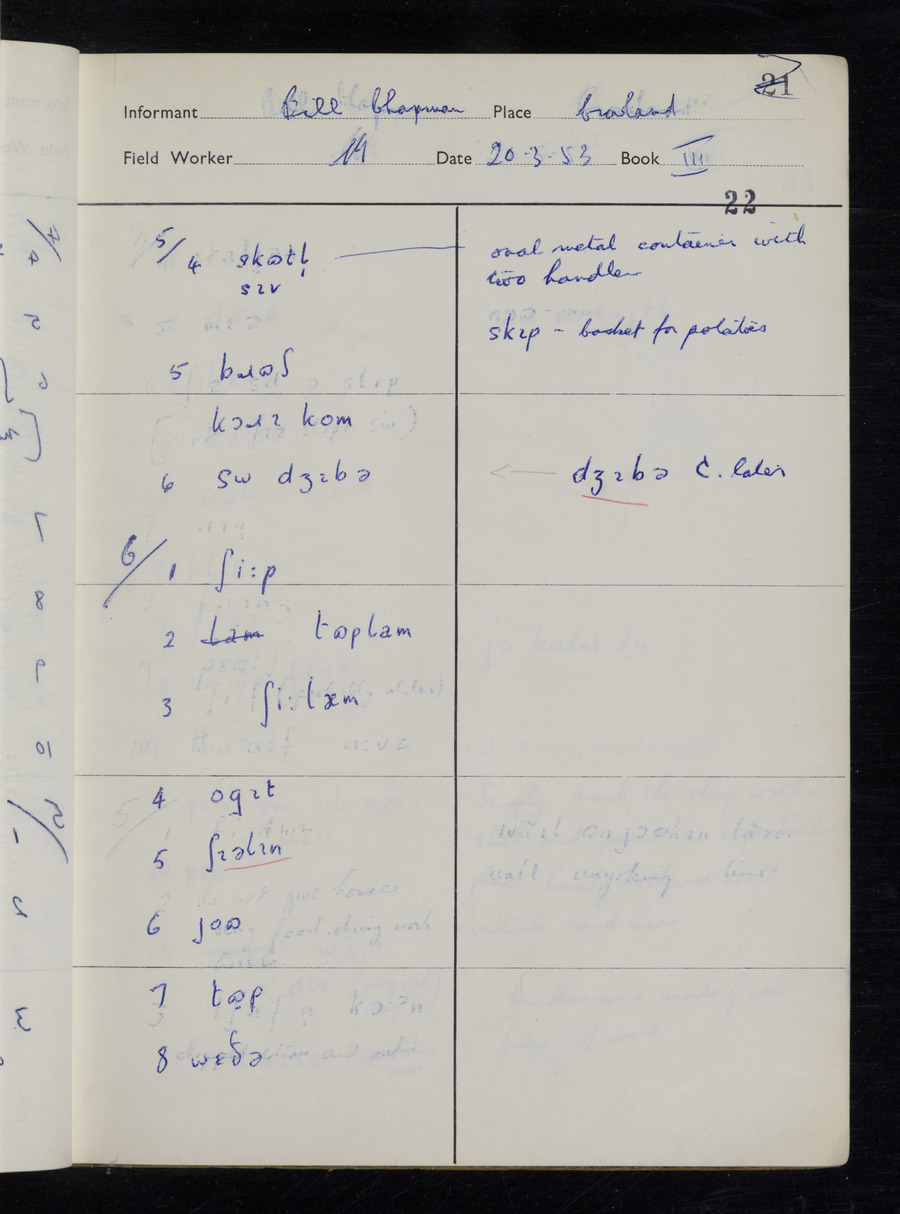 21
Informant Bill Chapman Place Crowland
Field Worker Date 20·3·53 Book III
22
5/4 skɷtl̩ oval metal container with
sɪv two handles
skɪp – basket for potatoes
5 bɹɷʃ
kɔɹɪ kom
6 dʒɪbə ← dʒɪbə C. later
6/1 ʃi:p
2 tɷplam
3 ʃi:læm
4 ogɪt
5 ʃɪəlɪn
6 joɷ
7 tɷp
8 wɛðə